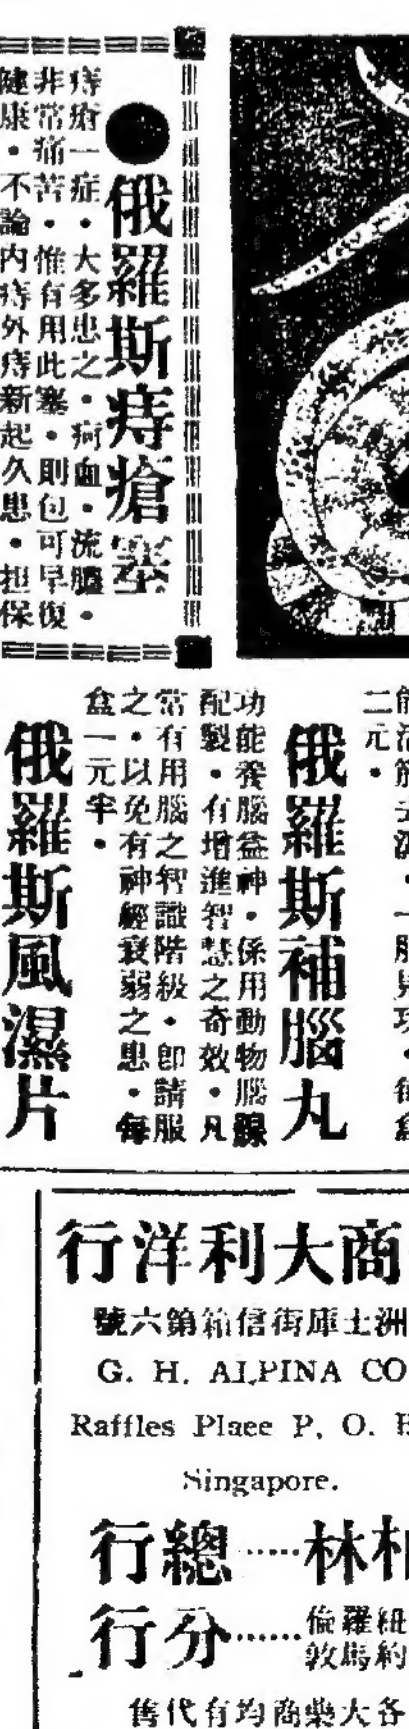 俄羅斯痔瘡塞
痔瘡一症・大多患之・疴血・流膿・
非常痛苦・惟有用此塞・則包可早復
健康・不論内痔外痔新起久患・担保
二元・
俄羅斯補腦丸
功能養腦益神・係用動物腦腺
配製・有增進智慧之奇效・凡
常有用腦之智識階級・即請服
之・以免有神經衰弱之患・每
盒一元半・
俄羅斯風濕片
行洋利大商
號六第箱信街庫土洲
G. H. ALPINA CO
Raffles Place P. O. B
Singapore.
行總……林柏
行分……倫敦 羅馬 紐約
售代有均商藥大各